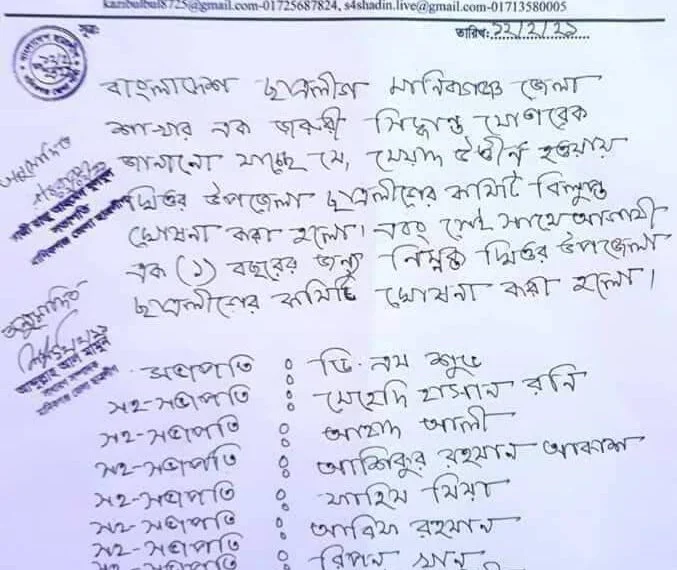 kanbulbul8725@gmail.com-01725687824, s4shadin.live@gmail.com-01713580005
তারিখ: ১২/২/২১
বাংলাদেশ ছাত্রলীগ মানিকগঞ্জ জেলা
শাখার এক জরুরী সিদ্ধান্ত মোতাবেক
জানানো যাচ্ছে যে, মেয়াদ উত্তীর্ন হওয়ায়
ঘিওর উপজেলা ছাত্রলীগের কমিটি বিলুপ্ত
ঘোষনা করা হলো। এবং সেই সাথে আগামী
এক (১) বছরের জন্য নিম্নোক্ত ঘিওর উপজেলা
ছাত্রলীগের কমিটি ঘোষনা করা হলো।
অনুমোদিত
সভাপতি
মানিকগঞ্জ জেলা ছাত্রলীগ
অনুমোদিত
সাধারণ সম্পাদক
মানিকগঞ্জ জেলা ছাত্রলীগ
সভাপতি : ভি. এম শুভ
সহ-সভাপতি : মেহেদি হাসান রনি
সহ-সভাপতি : আযাদ আলী
সহ-সভাপতি : আশিকুর রহমান আকাশ
সহ-সভাপতি : ফাহিম মিয়া
সহ-সভাপতি : আরিফ রহমান
সহ-সভাপতি : রিপন খান